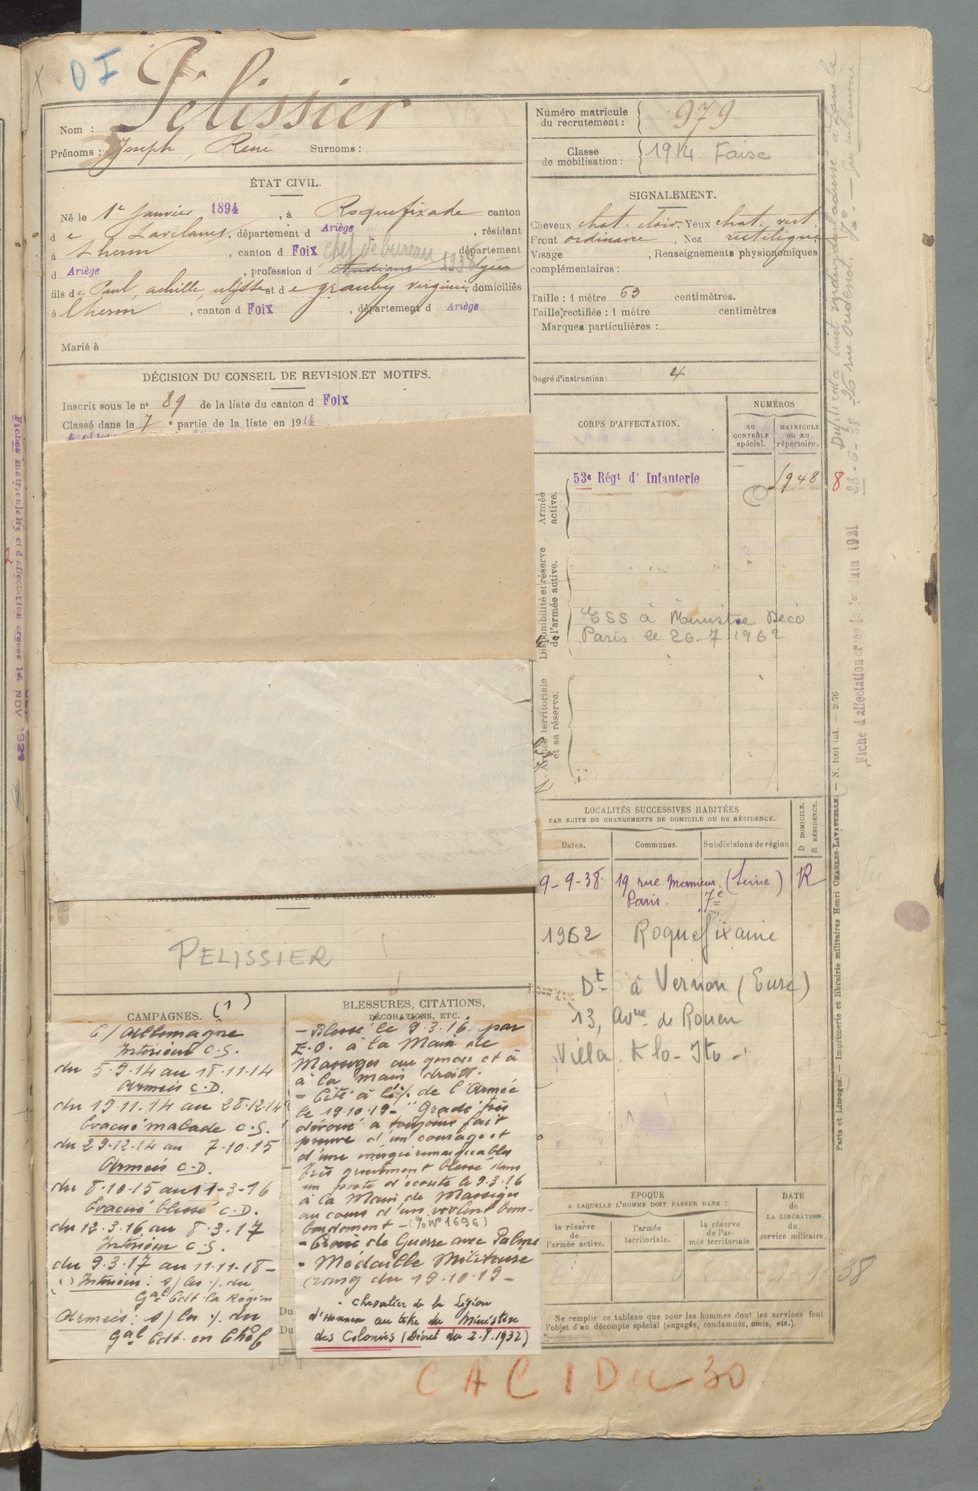 DI
Pélissier
Nom :
Prénoms : Joseph, René Surnoms :
Numéro matricule du recrutement : 979
Classe de mobilisation : 1914 Foix
ÉTAT CIVIL.
Né le 1er Janvier 1894, à Roquefixade canton
de Lavelanet, département d Ariège, résidant
à Lherm, canton d Foix Chef de bureau 1938 département
d Ariège, profession d' étudiant
fils de Paul, achille, ulysse et de grauby virginie, domiciliés
à Lherm, canton d Foix, département d Ariège
Marié à
SIGNALEMENT.
Cheveux chat. clair. Yeux chat. vert
Front ordinaire, Nez rectiligne
Visage , Renseignements physionomiques
complémentaires :
Taille : 1 mètre 63 centimètres.
Taille rectifiée : 1 mètre centimètres
Marques particulières :
Degré d'instruction : 4
DÉCISION DU CONSEIL DE REVISION ET MOTIFS.
Inscrit sous le n° 89 de la liste du canton d Foix
Classé dans la 7e partie de la liste en 1914
CORPS D'AFFECTATION.
NUMÉROS
AU CONTRÔLE spécial.
MATRICULE ou au répertoire.
Armée active.
53e Régt d' Infanterie
1948
8
Disponibilité et réserve de l'armée active.
ESS à Ministre Déco
Paris le 26-7 1962
Armée territoriale et sa réserve.
LOCALITÉS SUCCESSIVES HABITÉES
PAR SUITE DE CHANGEMENTS DE DOMICILE OU DE RÉSIDENCE.
D DOMICILE.
R RÉSIDENCE.
Dates. Communes. Subdivisions de région
9-9-38 19 rue (Seine) R
Paris. 7e
1962
Dt à Vernon (Eure)
13, Avnue de Rouen
Villa Klo-Ito
PELISSIER
CAMPAGNES. (1)
C/ Allemagne
Intérieur C.S.
du 5.9.14 au 18.11.14
Armées C.D.
du 19.11.14 au 28.12.14
Evacué malade C.S.
du 29.12.14 au 7.10.15
Armées C.D.
du 8.10.15 au 11-3-16
Evacué blessé C.D.
du 12.3.16 au 8.3.17
Intérieur C.S.
du 9.3.17 au 11.11.18
(1) Intérieur : s/ les % du
Gal Cdt la Région
Armées : s/ les % du
Gal Cdt en Chef
BLESSURES, CITATIONS,
DÉCORATIONS, ETC.
- Blessé le 9.3.16 par
E.O. à la Main de
Massiges au genou et à
à la main droite.
- Cité à l'o/ de l'Armée
le 19.10.19 - "Gradé très
dévoué a toujours fait
preuve d'un courage et
d'une énergie remarquables
Très grièvement blessé dans
un poste d'écoute le 9.3.16
à la Main de Massiges
au cours d'un violent bom-
bardement - (% N° 1696)
- Croix de Guerre avec Palme
- Médaille Militaire
(rang du 19.10.19 -
- Chevalier de la Légion
d'Honneur au titre du Ministère
des Colonies (Décret du 2.8.1932)
Du
Du
ÉPOQUE
A LAQUELLE L'HOMME DOIT PASSER DANS :
la réserve de l'armée active.
l'armée territoriale.
la réserve de l'armée territoriale
DATE
de
LA LIBÉRATION
du
service militaire.
38
Ne remplir ce tableau que pour les hommes dont les services font
l'objet d'un décompte spécial (engagés, condamnés, omis, etc.).
CACIDu 30
Paris et Limoges. — Imprimerie et librairie militaires Henri CHARLES-LAVAUZELLE. — N. 1001 int. — 2.76
Fiche d'affectation créée le 1er Juin 1921
Fiches matricules et d'affectation créées 14 NOV 192